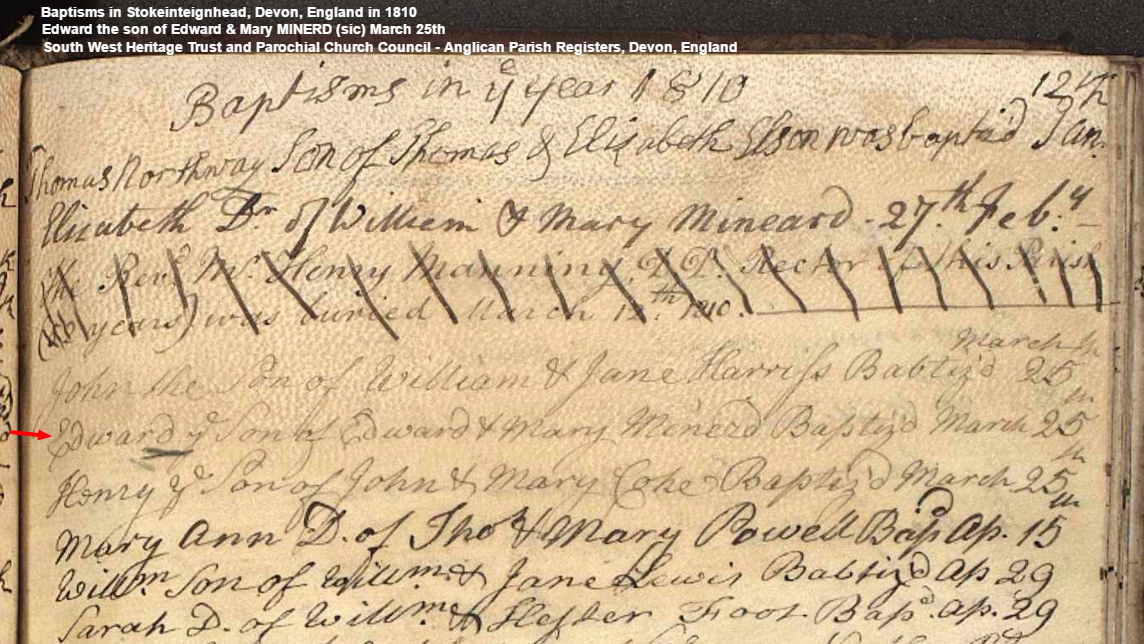 Baptisms in Stokeinteignhead, Devon, England in 1810
Edward the son of Edward & Mary MINERD (sic) March 25th
South West Heritage Trust and Parochial Church Council - Anglican Parish Registers, Devon, England
Baptisms in ye year 1810
12th
Thomas Northway Son of Thomas & Elizabeth Elson was baptiz'd Jan.
Elizabeth Dr. of William & Mary Mineard - 27th Feb.y -
the Revd. Mr. Henry Manning D.D. Rector of this Parish
years) was buried March th 1810.
March th
John the Son of William & Jane Harriss Babtiz'd 25
th
Edward ye Son of Edward & Mary Minerd Baptiz'd March 25
th
Henry ye Son of John & Mary Coke Baptiz'd March 25
th
Mary Ann D. of Thos. & Mary Powell Bap'd Ap. 15
Willm. Son of Willm. & Jane Lewis Babtiz'd Ap 29
Sarah D. of Willm. & Hester Foot Bapd. Ap. 29